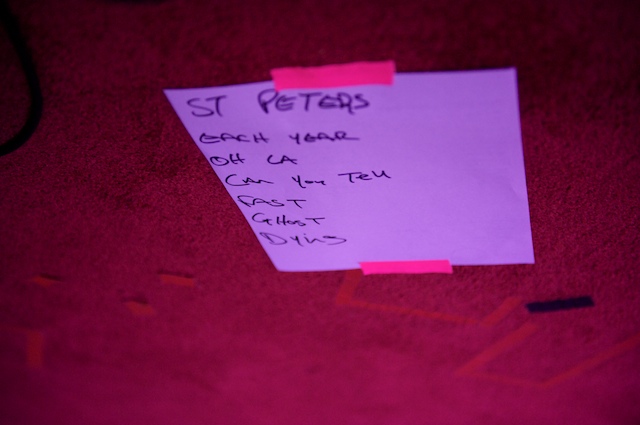 ST PETERS
EACH YEAR
OH LA
Can You Tell
FAST
GHOST
Dying